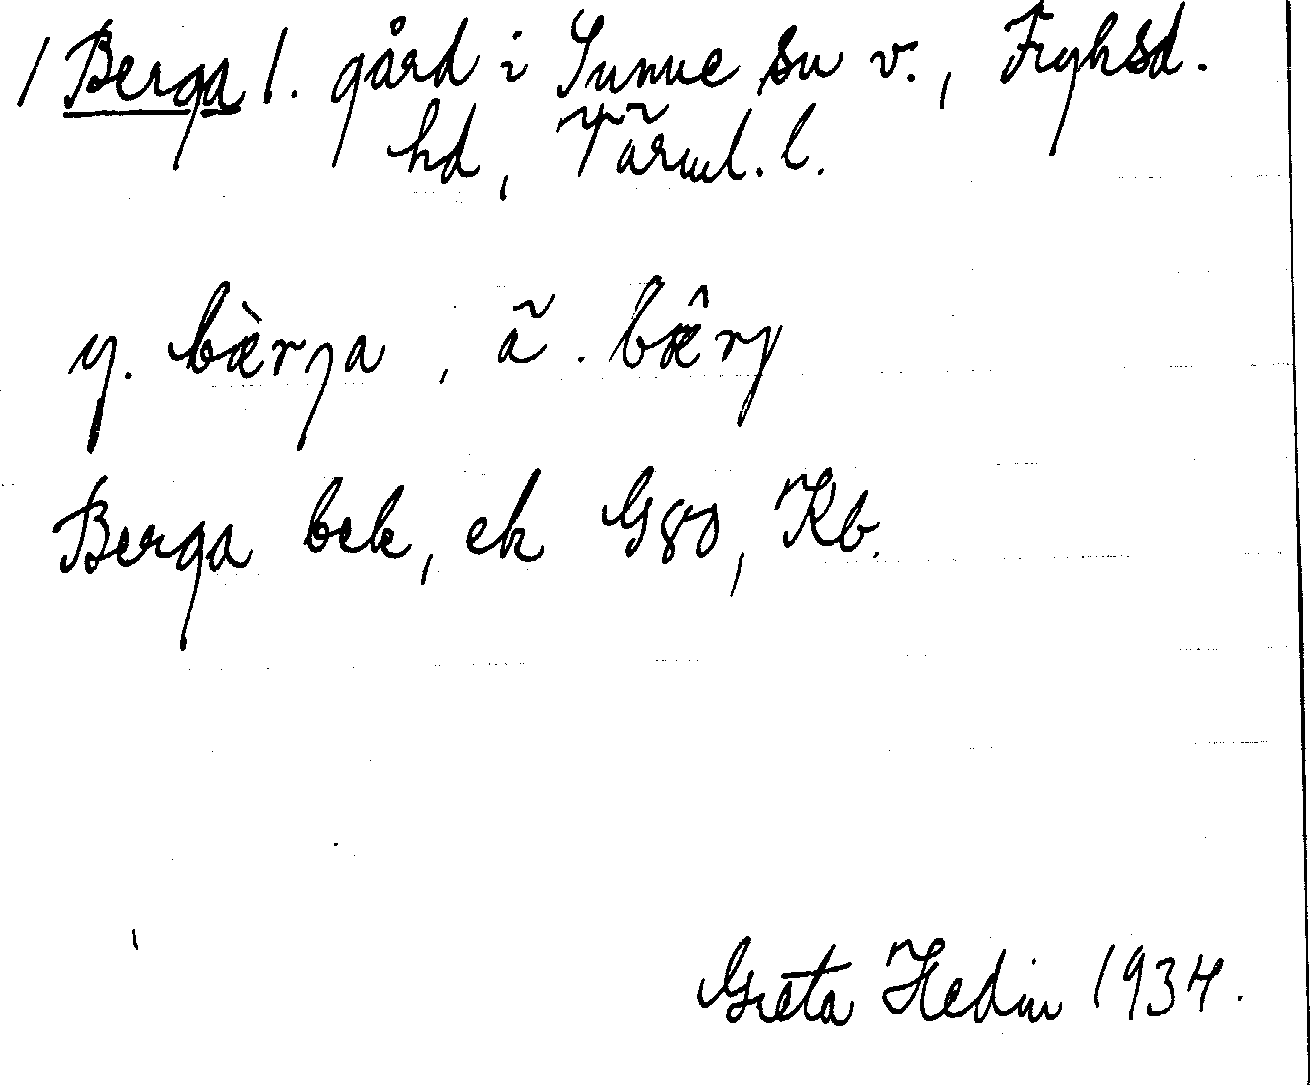 /Berga/. gård i Sunne sn v., Fryksd.
hd, Värml. l.
y. bæ̀rɟa, ä. bæ̂rɟ
Berga bek, ek G80, Kb.
Greta Hedin 1934.